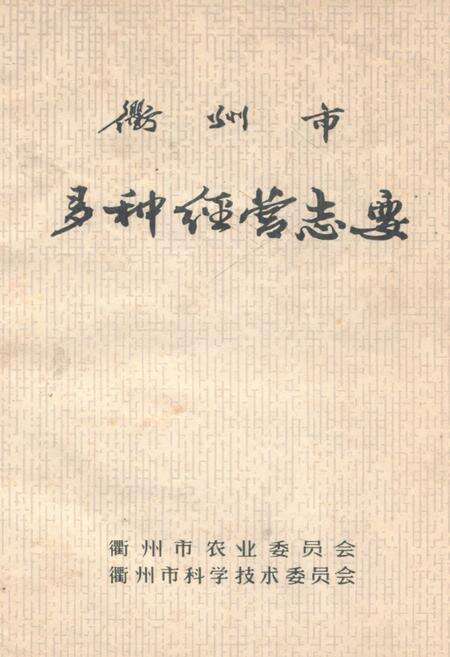 衢州市
多种经营志要
衢州市农业委员会
衢州市科学技术委员会